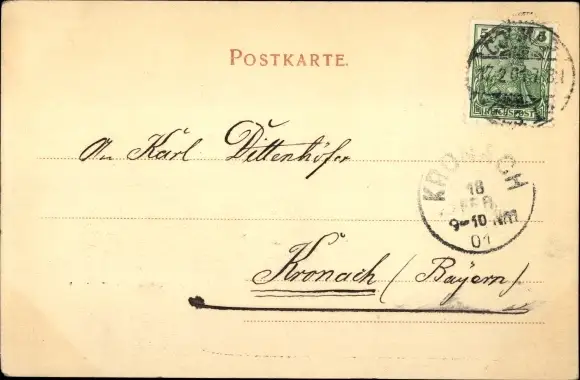 5 5
POSTKARTE.
17.2.01.
REICHSPOST
An Karl Dittenhöfer
KRONACH
18
FEB.
9-10 NM
01
Kronach (Bayern)